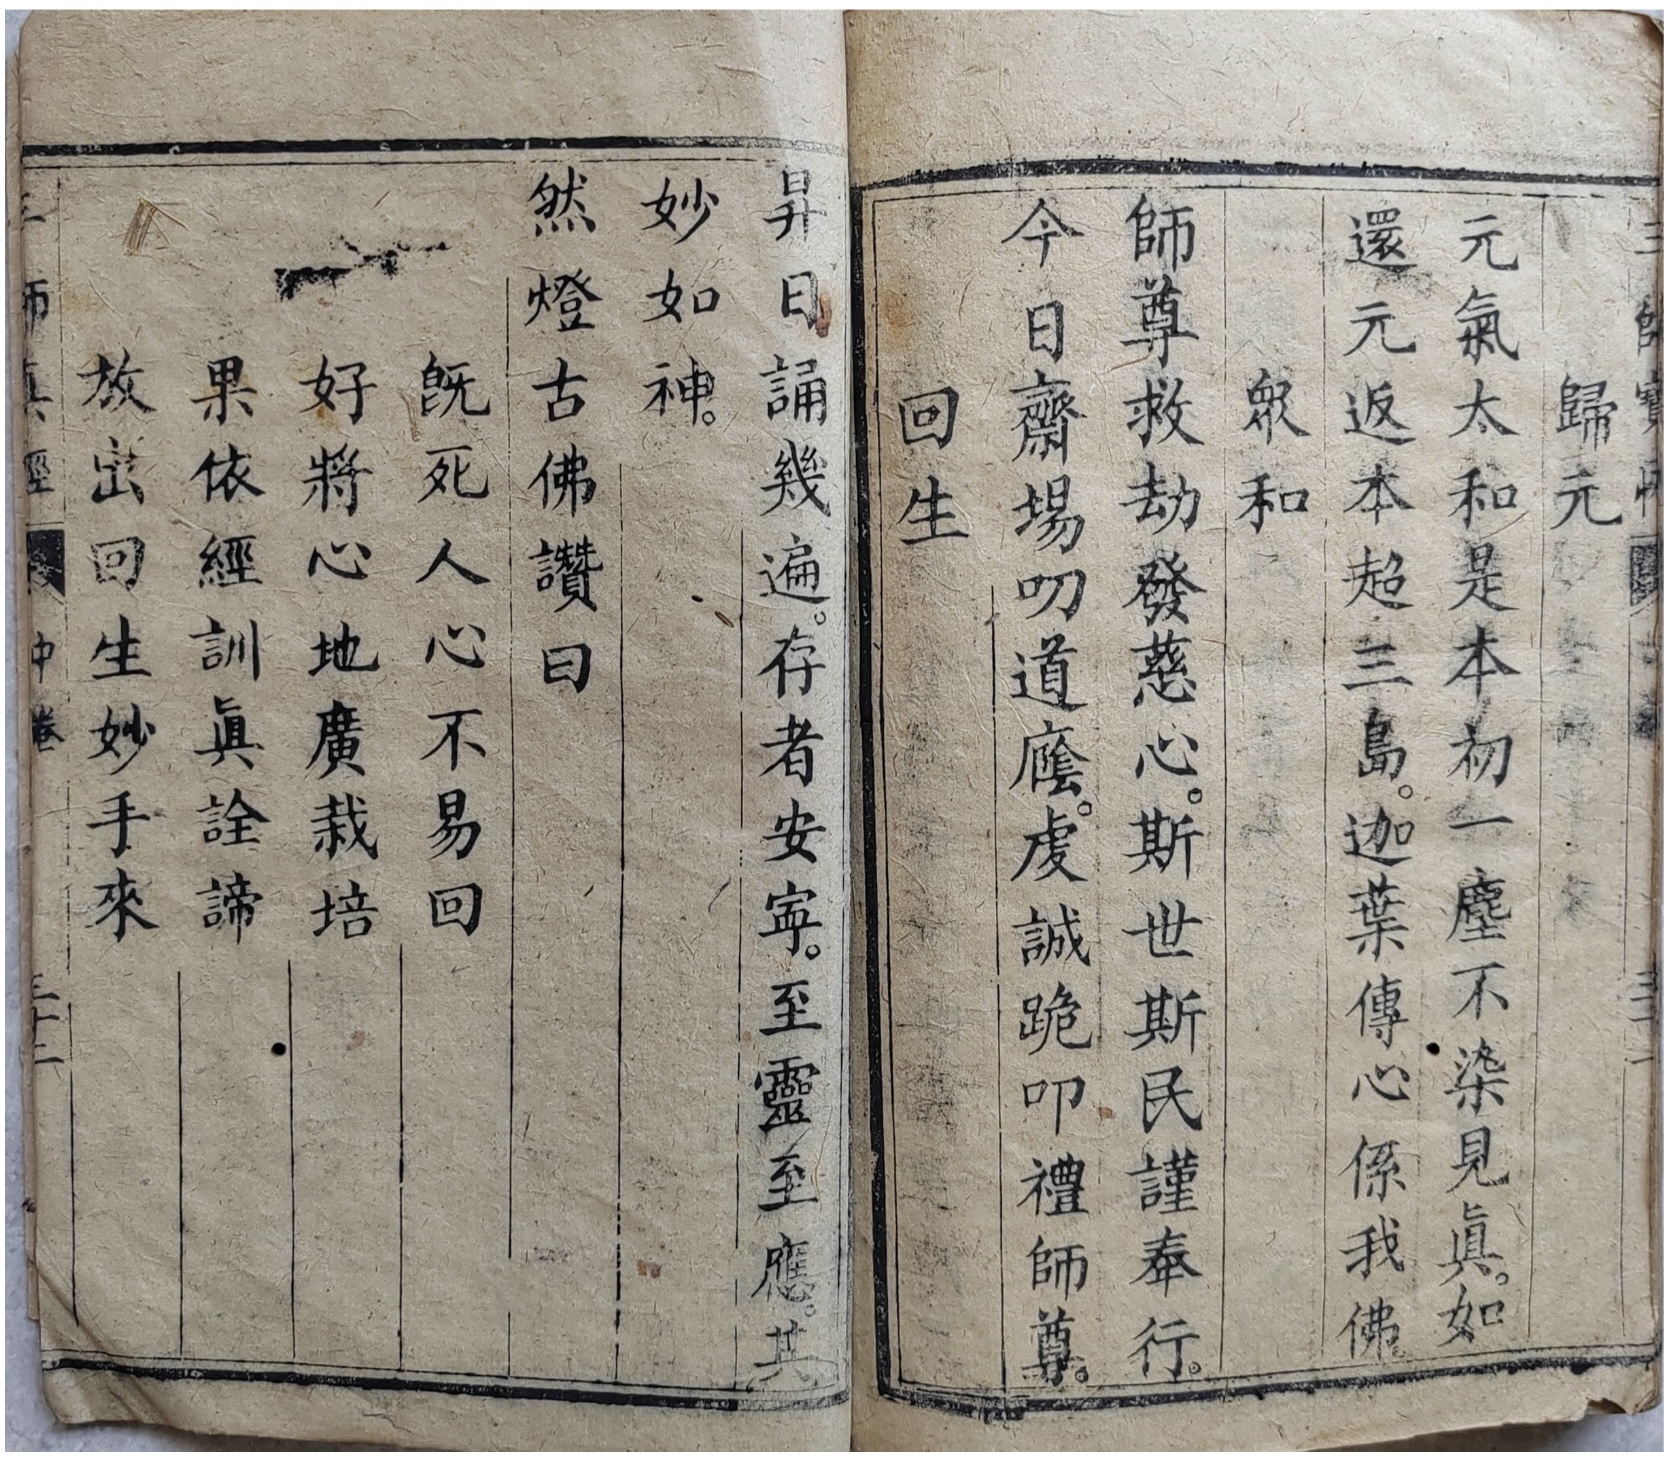 歸元
元氣太和是本初一塵不染見眞。如
還元返本超三島。迦葉傳心係我佛。
衆和
師尊救劫發慈心。斯世斯民謹奉行。
今日齋場叨道廕。虔誠跪叩禮師尊。
回生
昇日誦幾遍。存者安寧。至靈至應。其
妙如神。
然燈古佛讚曰
旣死人心不易回
好將心地廣栽培
果依經訓眞詮諦
放出回生妙手來
師眞經
中卷
三十二